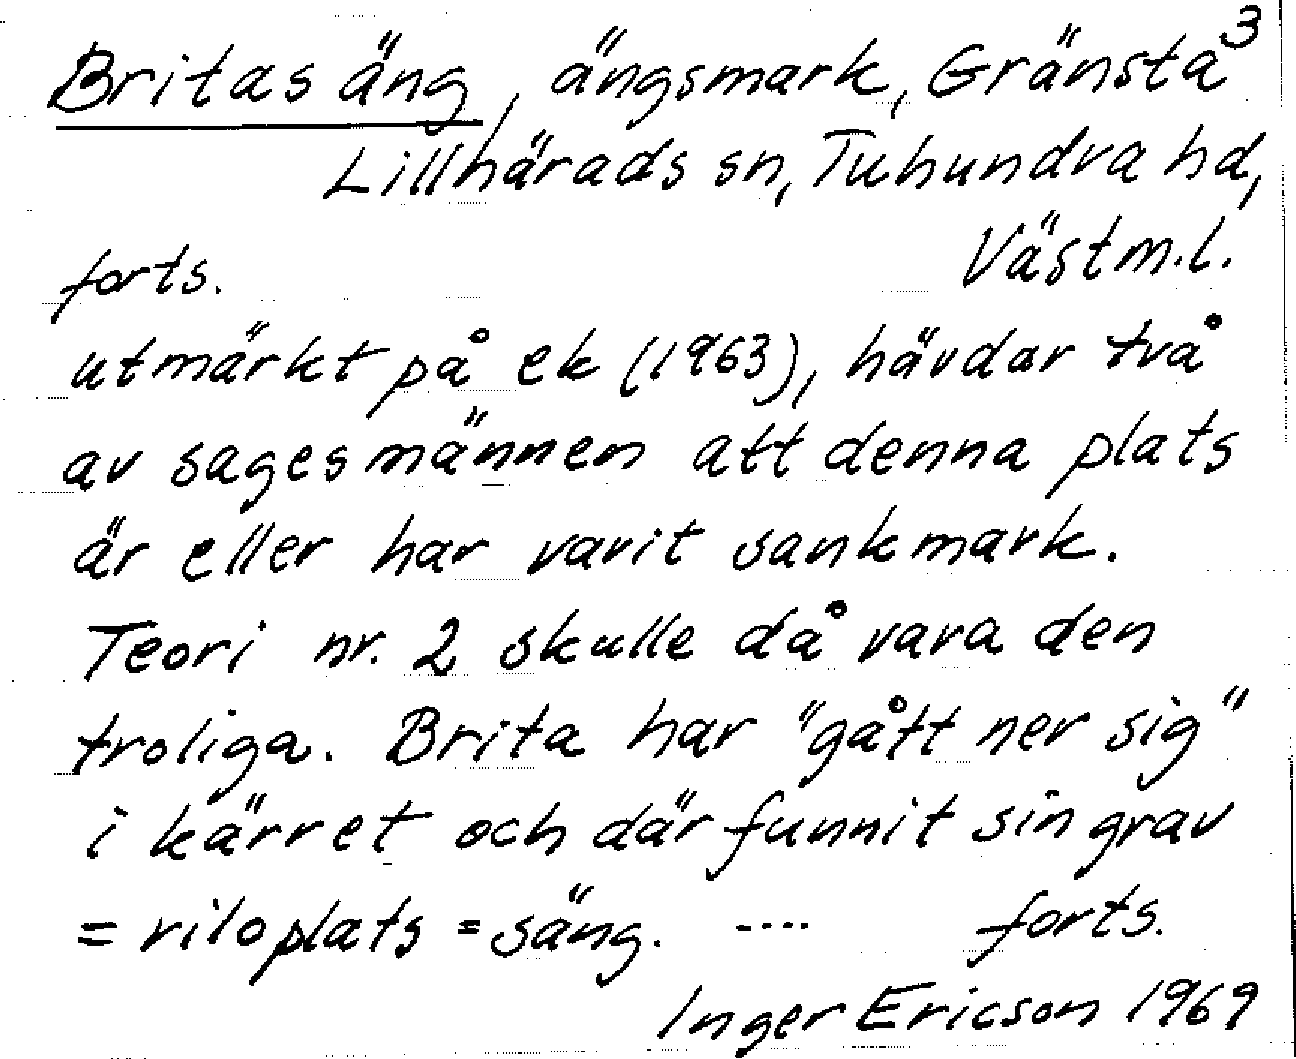 Britas äng, ängsmark, Gränsta 3
Lillhärads sn, Tuhundra hd,
Västm.l.
forts.
utmärkt på ek (1963), hävdar två
av sagesmännen att denna plats
är eller har varit sankmark.
Teori nr. 2 skulle då vara den
troliga. Brita har "gått ner sig"
i kärret och där funnit sin grav
= viloplats = säng. ---- forts.
Inger Ericson 1969